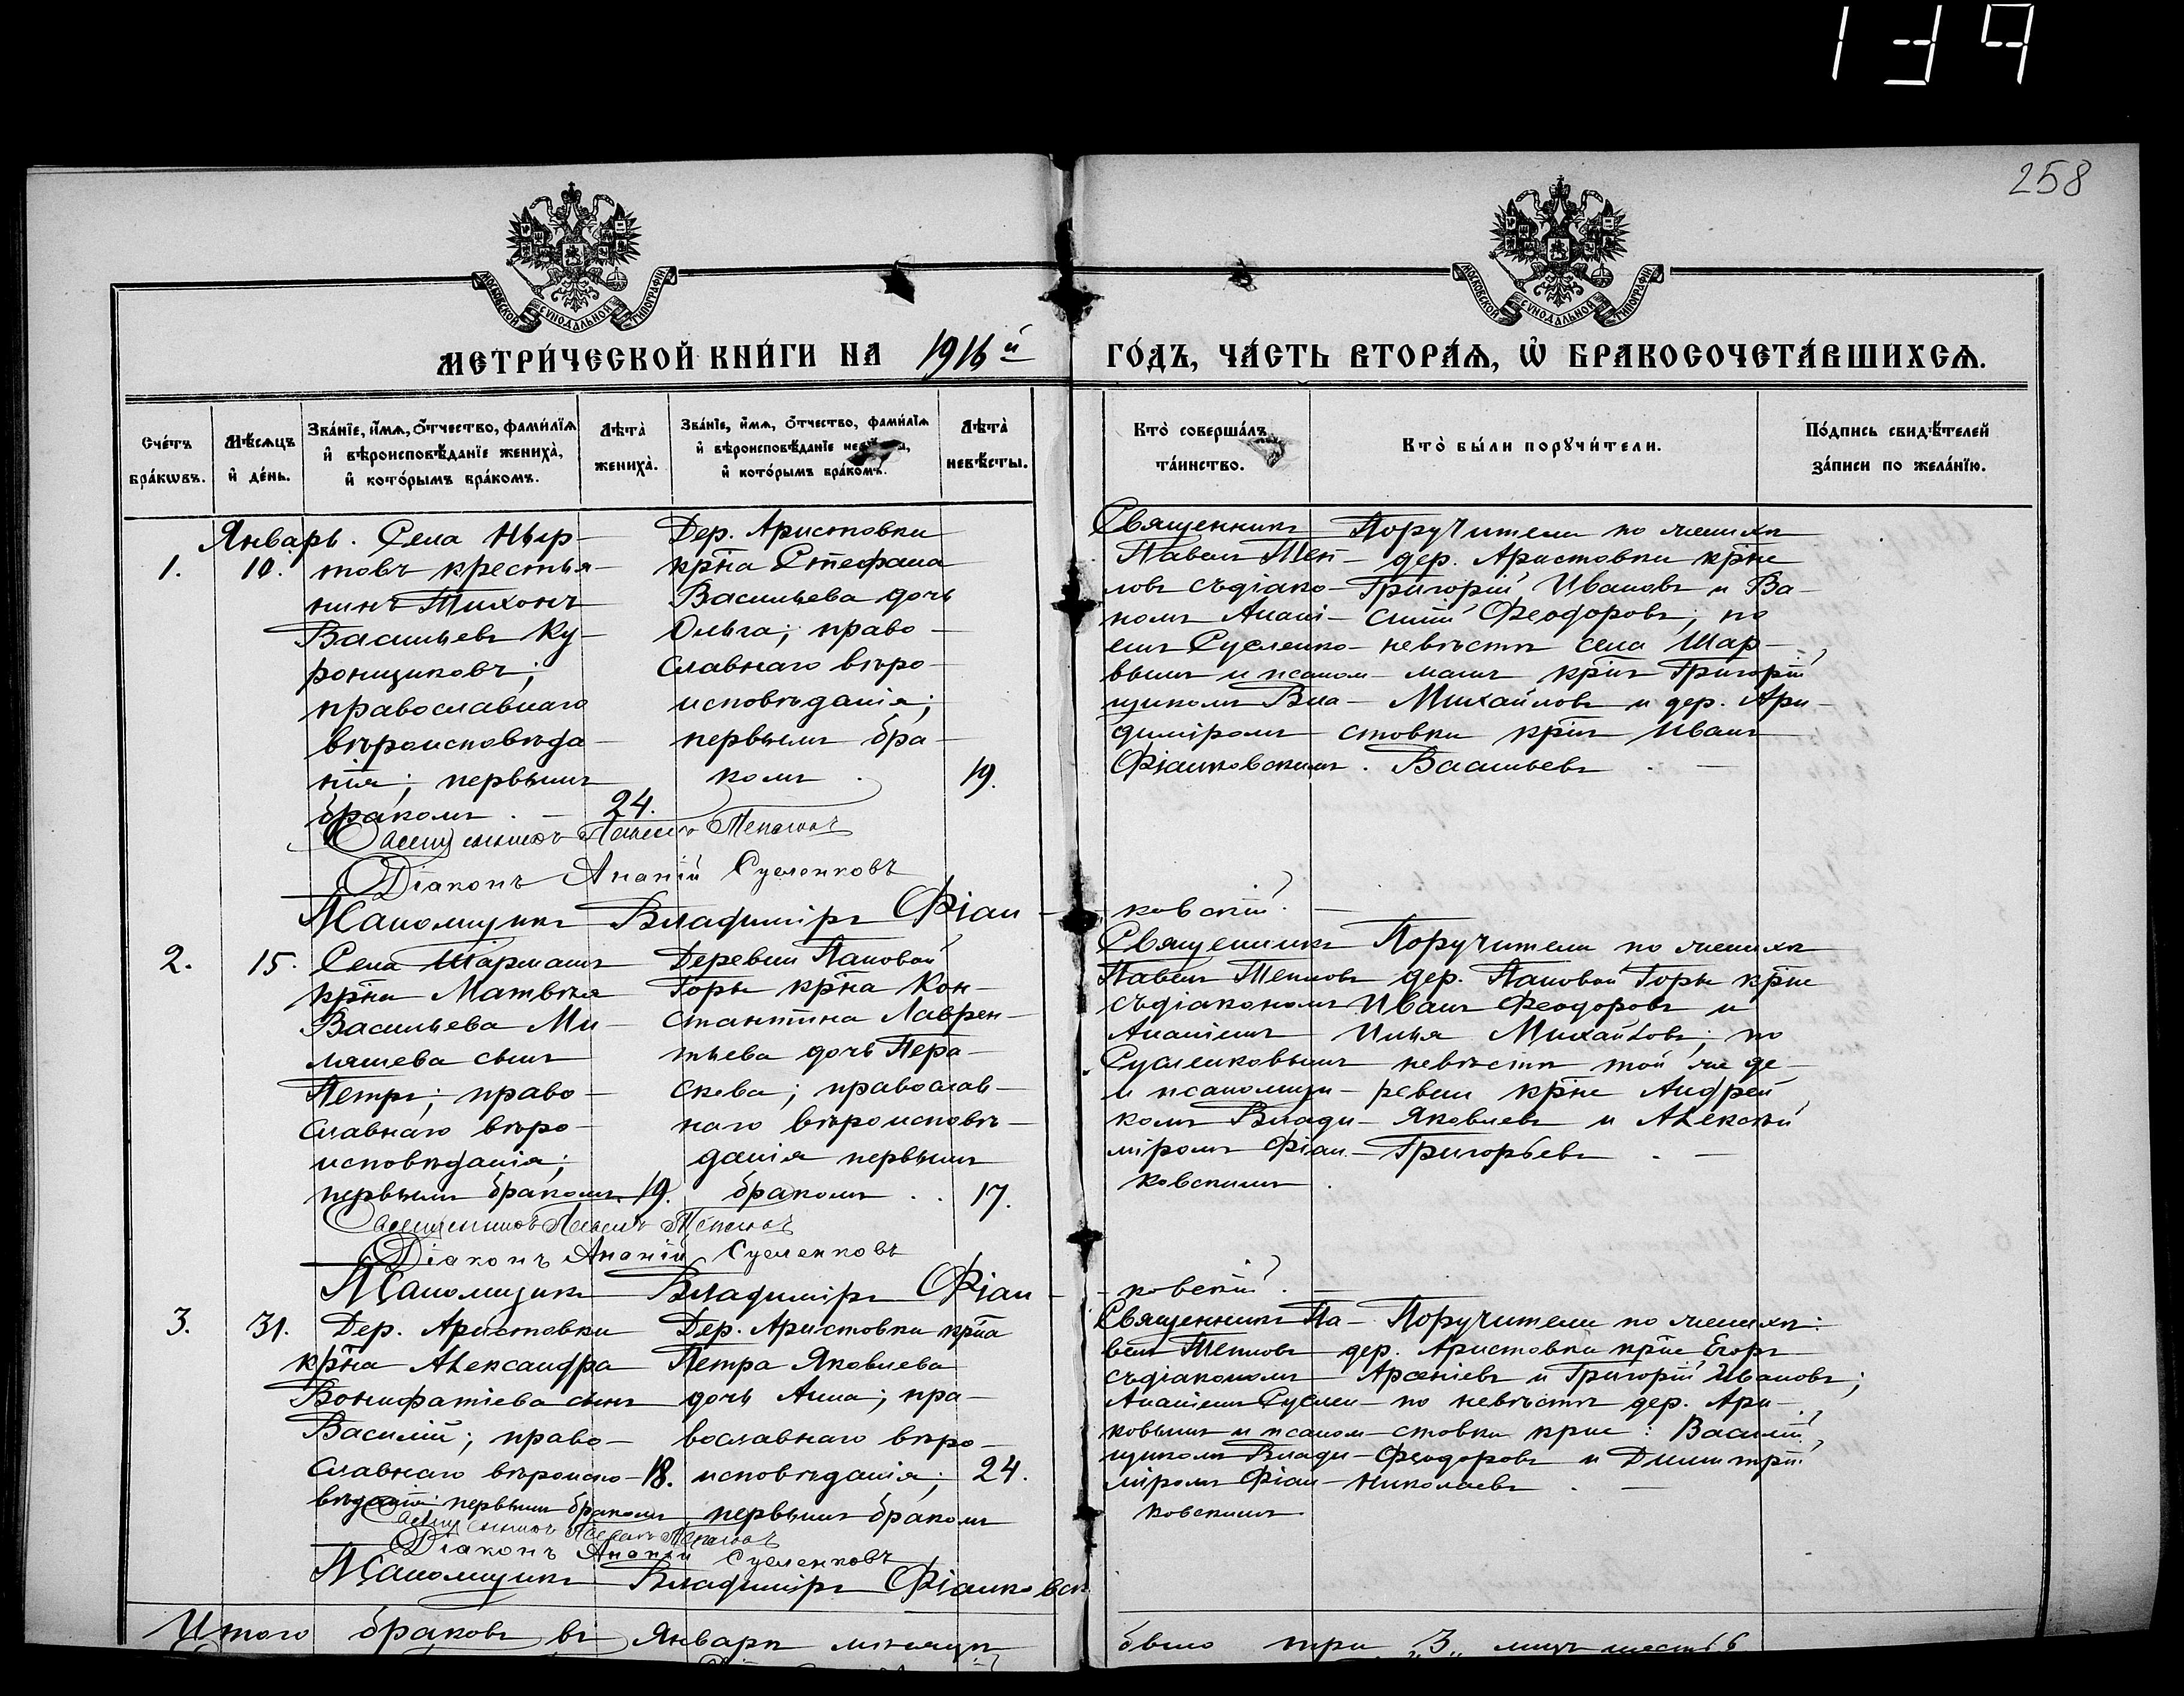 139
258
МОСКОВСКОЙ СѴНОДАЛЬНОЙ ТИПОГРАФІИ
МОСКОВСКОЙ СѴНОДАЛЬНОЙ ТИПОГРАФІИ
МЕТРИ́ЧЕСКОЙ КНИ́ГИ НА 1916й ГО́ДЪ, ЧА́СТЬ ВТОРА́Ѧ, Ѡ БРАКОСОЧЕТА́ВШИХСѦ.
Сче́тъ бра́кѡвъ.
Мѣ́сѧцъ и де́нь.
Зва́нїе, и́мѧ, ѻ́тчество, фами́лїѧ и вѣроисповѣ́данїе жениха̀, и кото́рымъ бра́комъ.
Лѣ́та жениха̀.
Зва́нїе, и́мѧ, ѻ́тчество, фами́лїѧ и вѣроисповѣ́данїе невѣ́сты, и кото́рымъ бра́комъ.
Лѣ́та невѣ́сты.
Кто̀ соверша́лъ та́инство.
Кто̀ бы́ли порꙋчи́тели.
По́дпись свидѣ́телей за́писи по жела́нїю.
Январь.
1.
10.
Села Ныр-
товъ крестья-
нинъ Тихонъ
Васильевъ Ку-
ронщиковъ;
православнаго
вѣроисповѣда-
нія; первымъ
бракомъ. —
24.
Дер. Аристовки
кр̃на Стефана
Васильева дочь
Ольга; право-
славнаго вѣро-
исповѣданія;
первымъ бра-
комъ.
19.
Священникъ
Павелъ Теп-
ловъ съ діако-
номъ Анані-
емъ Сусленко-
вымъ и псалом-
щикомъ Вла-
диміромъ
Фіалковскимъ.
Поручители по женихѣ
дер. Аристовки кр̃не
Григорій Ивановъ и Ва-
силій Феодоровъ; по
невѣстѣ села Шар-
машъ кр̃нъ Григорій
Михайловъ и дер. Ари-
стовки кр̃нъ Иванъ
Васильевъ. —
Священникъ Павелъ Тепловъ
Діаконъ Ананій Сусленковъ
Псаломщикъ Владиміръ Фіал-
ковскій. —
2.
15.
Села Шармашъ
кр̃на Матвѣя
Васильева Ми-
ляшева сынъ
Петръ; право-
славнаго вѣро-
исповѣданія;
первымъ бракомъ.
19.
Деревни Паповой
Горы кр̃на Кон-
стантина Лаврен-
тьева дочь Пера-
скева; православ-
наго вѣроисповѣ-
данія первымъ
бракомъ. .
17.
Священникъ
Павелъ Тепловъ
съ діакономъ
Ананіемъ
Сусленковымъ
и псаломщи-
комъ Влади-
міромъ Фіал-
ковскимъ.
Поручители по женихѣ
дер. Паповой Горы кр̃не
Иванъ Феодоровъ и
Илья Михайловъ; по
невѣстѣ той же де-
ревни кр̃не Андрей
Яковлевъ и Алексѣй
Григорьевъ. —
Священникъ Павелъ Тепловъ
Діаконъ Ананій Сусленковъ
Псаломщикъ Владиміръ Фіал-
ковскій. —
3.
31.
Дер. Аристовки
кр̃на Александра
Вонифатіева сынъ
Василій; право-
славнаго вѣроиспо-
вѣданія; первымъ бракомъ
18.
Дер. Аристовки кр̃на
Петра Яковлева
дочь Анна; пра-
вославнаго вѣро-
исповѣданія;
первымъ бракомъ
24.
Священникъ Па-
велъ Тепловъ
съ діакономъ
Ананіемъ Суслен-
ковымъ и псалом-
щикомъ Влади-
міромъ Фіал-
ковскимъ.
Поручители по женихѣ:
дер. Аристовки кр̃не Егоръ
Арсеніевъ и Григорій Ивановъ;
по невѣстѣ дер. Ари-
стовки крне: Василій
Феодоровъ и Димитрій
Николаевъ. —
Священникъ Павелъ Тепловъ
Діаконъ Ананій Сусленковъ
Псаломщикъ Владиміръ Фіалковск
Итого браковъ въ Январѣ мѣсяцѣ было три „3„ лицъ шесть 6